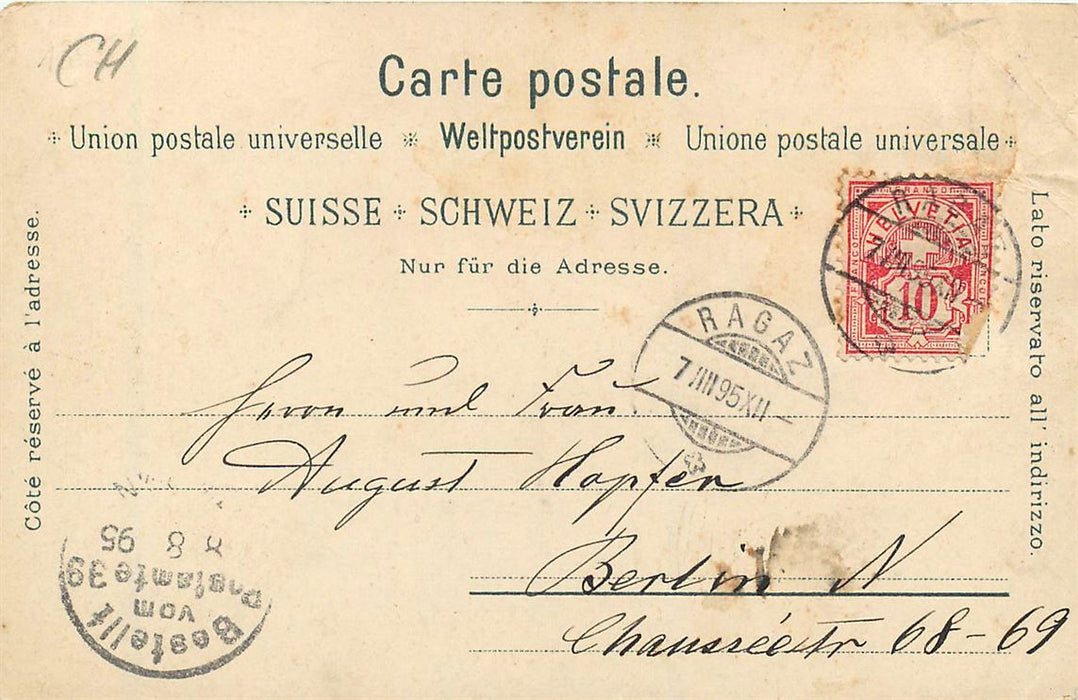 CH
Carte postale.
Union postale universelle Weltpostverein Unione postale universale
SUISSE SCHWEIZ SVIZZERA
Nur für die Adresse.
Côté réservé à l'adresse.
Lato riservato all' indirizzo.
FRANCO
HELVETIA
FRANCO FRANCO
10
RAGAZ
7 VIII 95 XII
Herrn und Frau
August Hopfer
Berlin N
Chausséestr 68-69
Bestellt
vom
Postamte 39
8 8 95